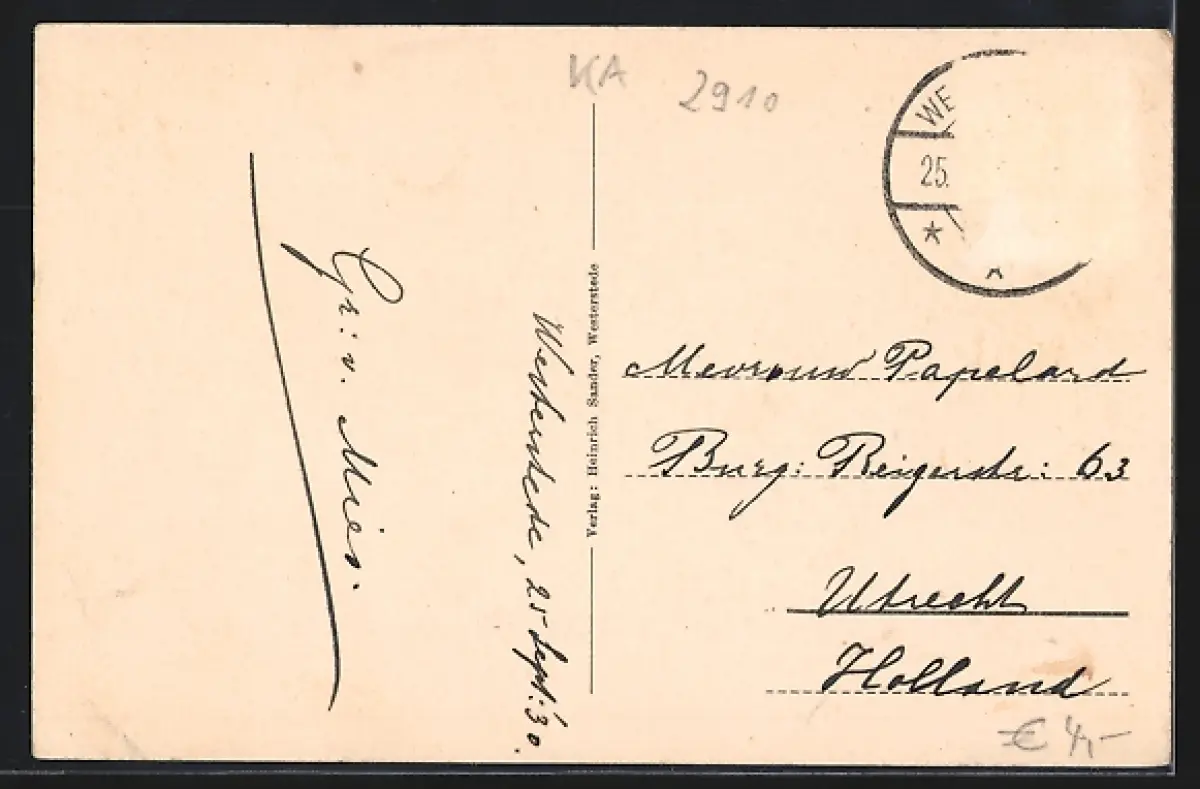 KA
2910
WE
25.
Gr: v. Mies.
Westerstede, 25 Sept: 30.
Verlag: Heinrich Sander, Westerstede
Mevrouw Papelard
Burg: Reigerstr: 63
Utrecht
Holland
€ 4,-